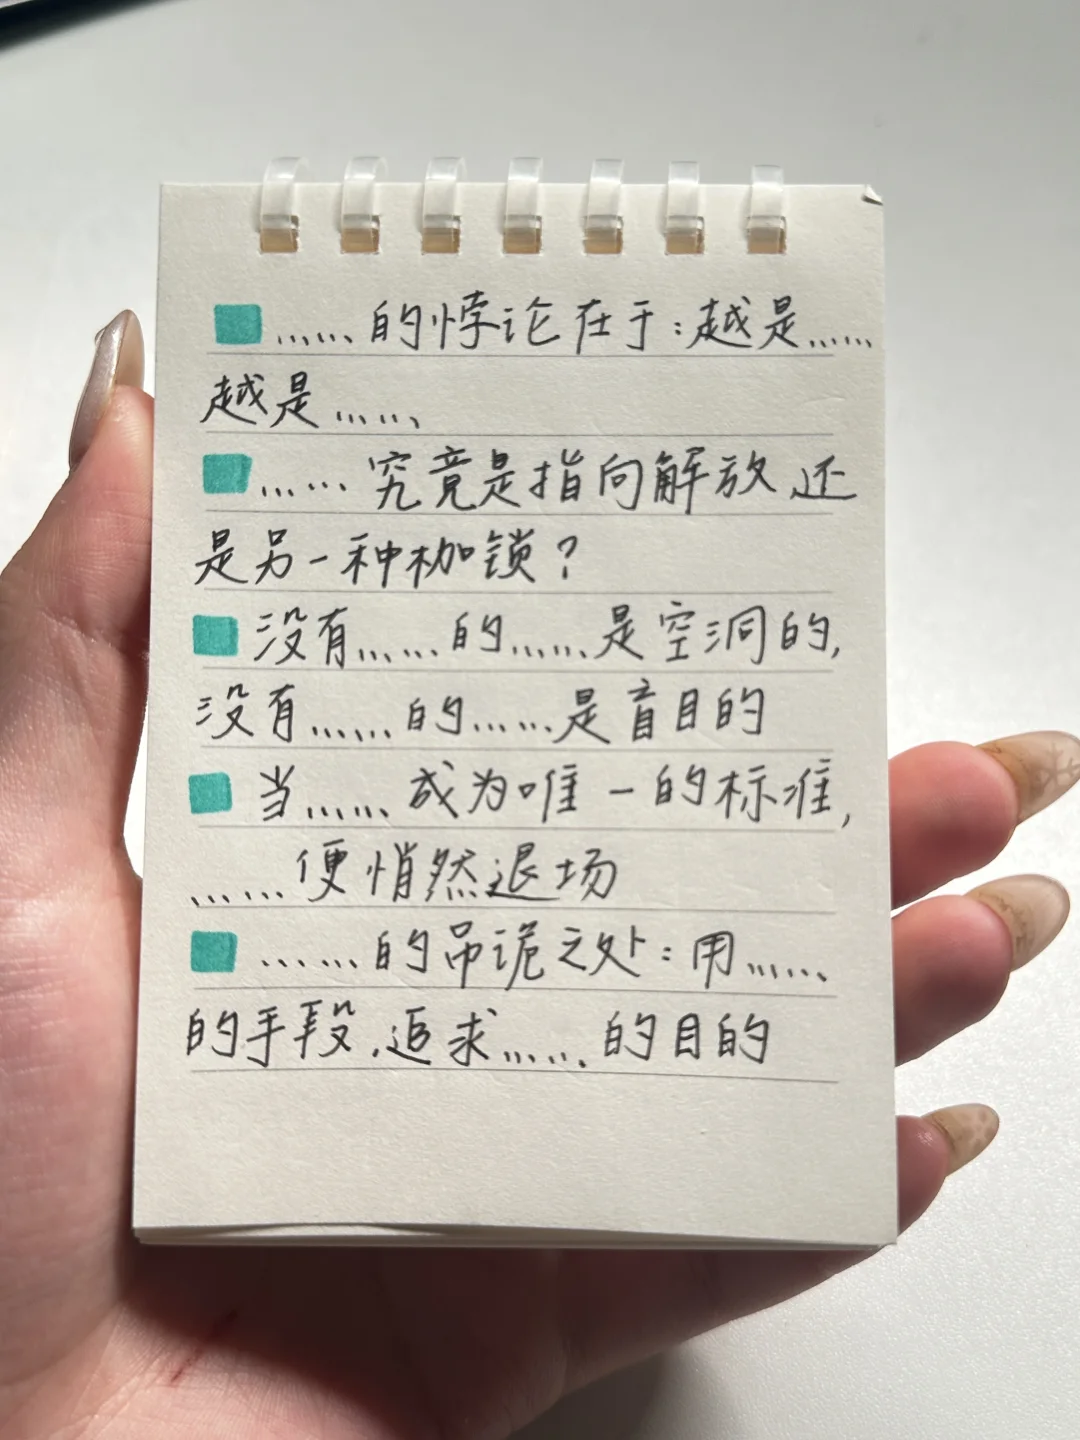 ……的悖论在于:越是……
越是……
……究竟是指向解放还
是另一种枷锁?
没有……的……是空洞的,
没有……的……是盲目的
当……成为唯一的标准,
……便悄然退场
……的吊诡之处:用……
的手段,追求……的目的